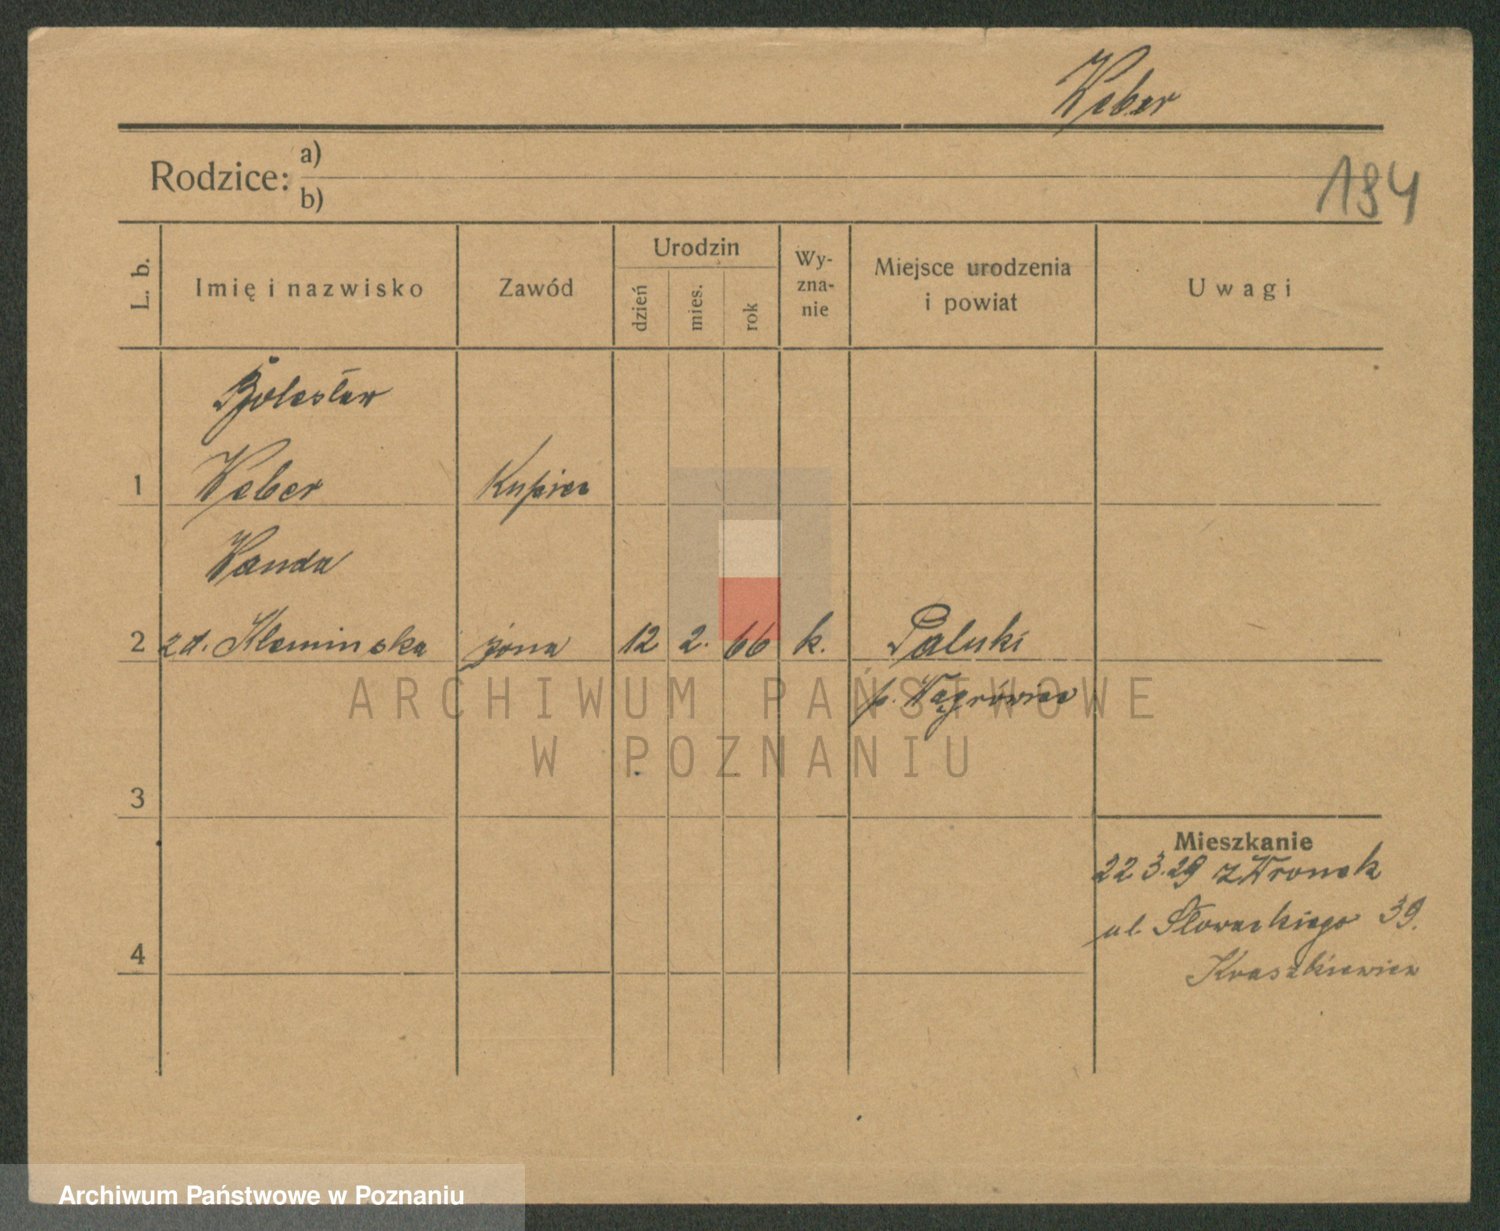 Weber
Rodzice: a)
b)
194
L. b.
Imię i nazwisko
Zawód
Urodzin
dzień
mies.
rok
Wy-
zna-
nie
Miejsce urodzenia
i powiat
Uwagi
Bolesław
1 Weber Kupiec
Wanda
2 zd. Klemińska żona 12 2. 66 k. Paluki
p. Wągrówiec
3
Mieszkanie
22 3.29 z Wronek
ul. Słowackiego 39.
4
Kraszkiewicz
ARCHIWUM PAŃSTWOWE
W POZNANIU
Archiwum Państwowe w Poznaniu